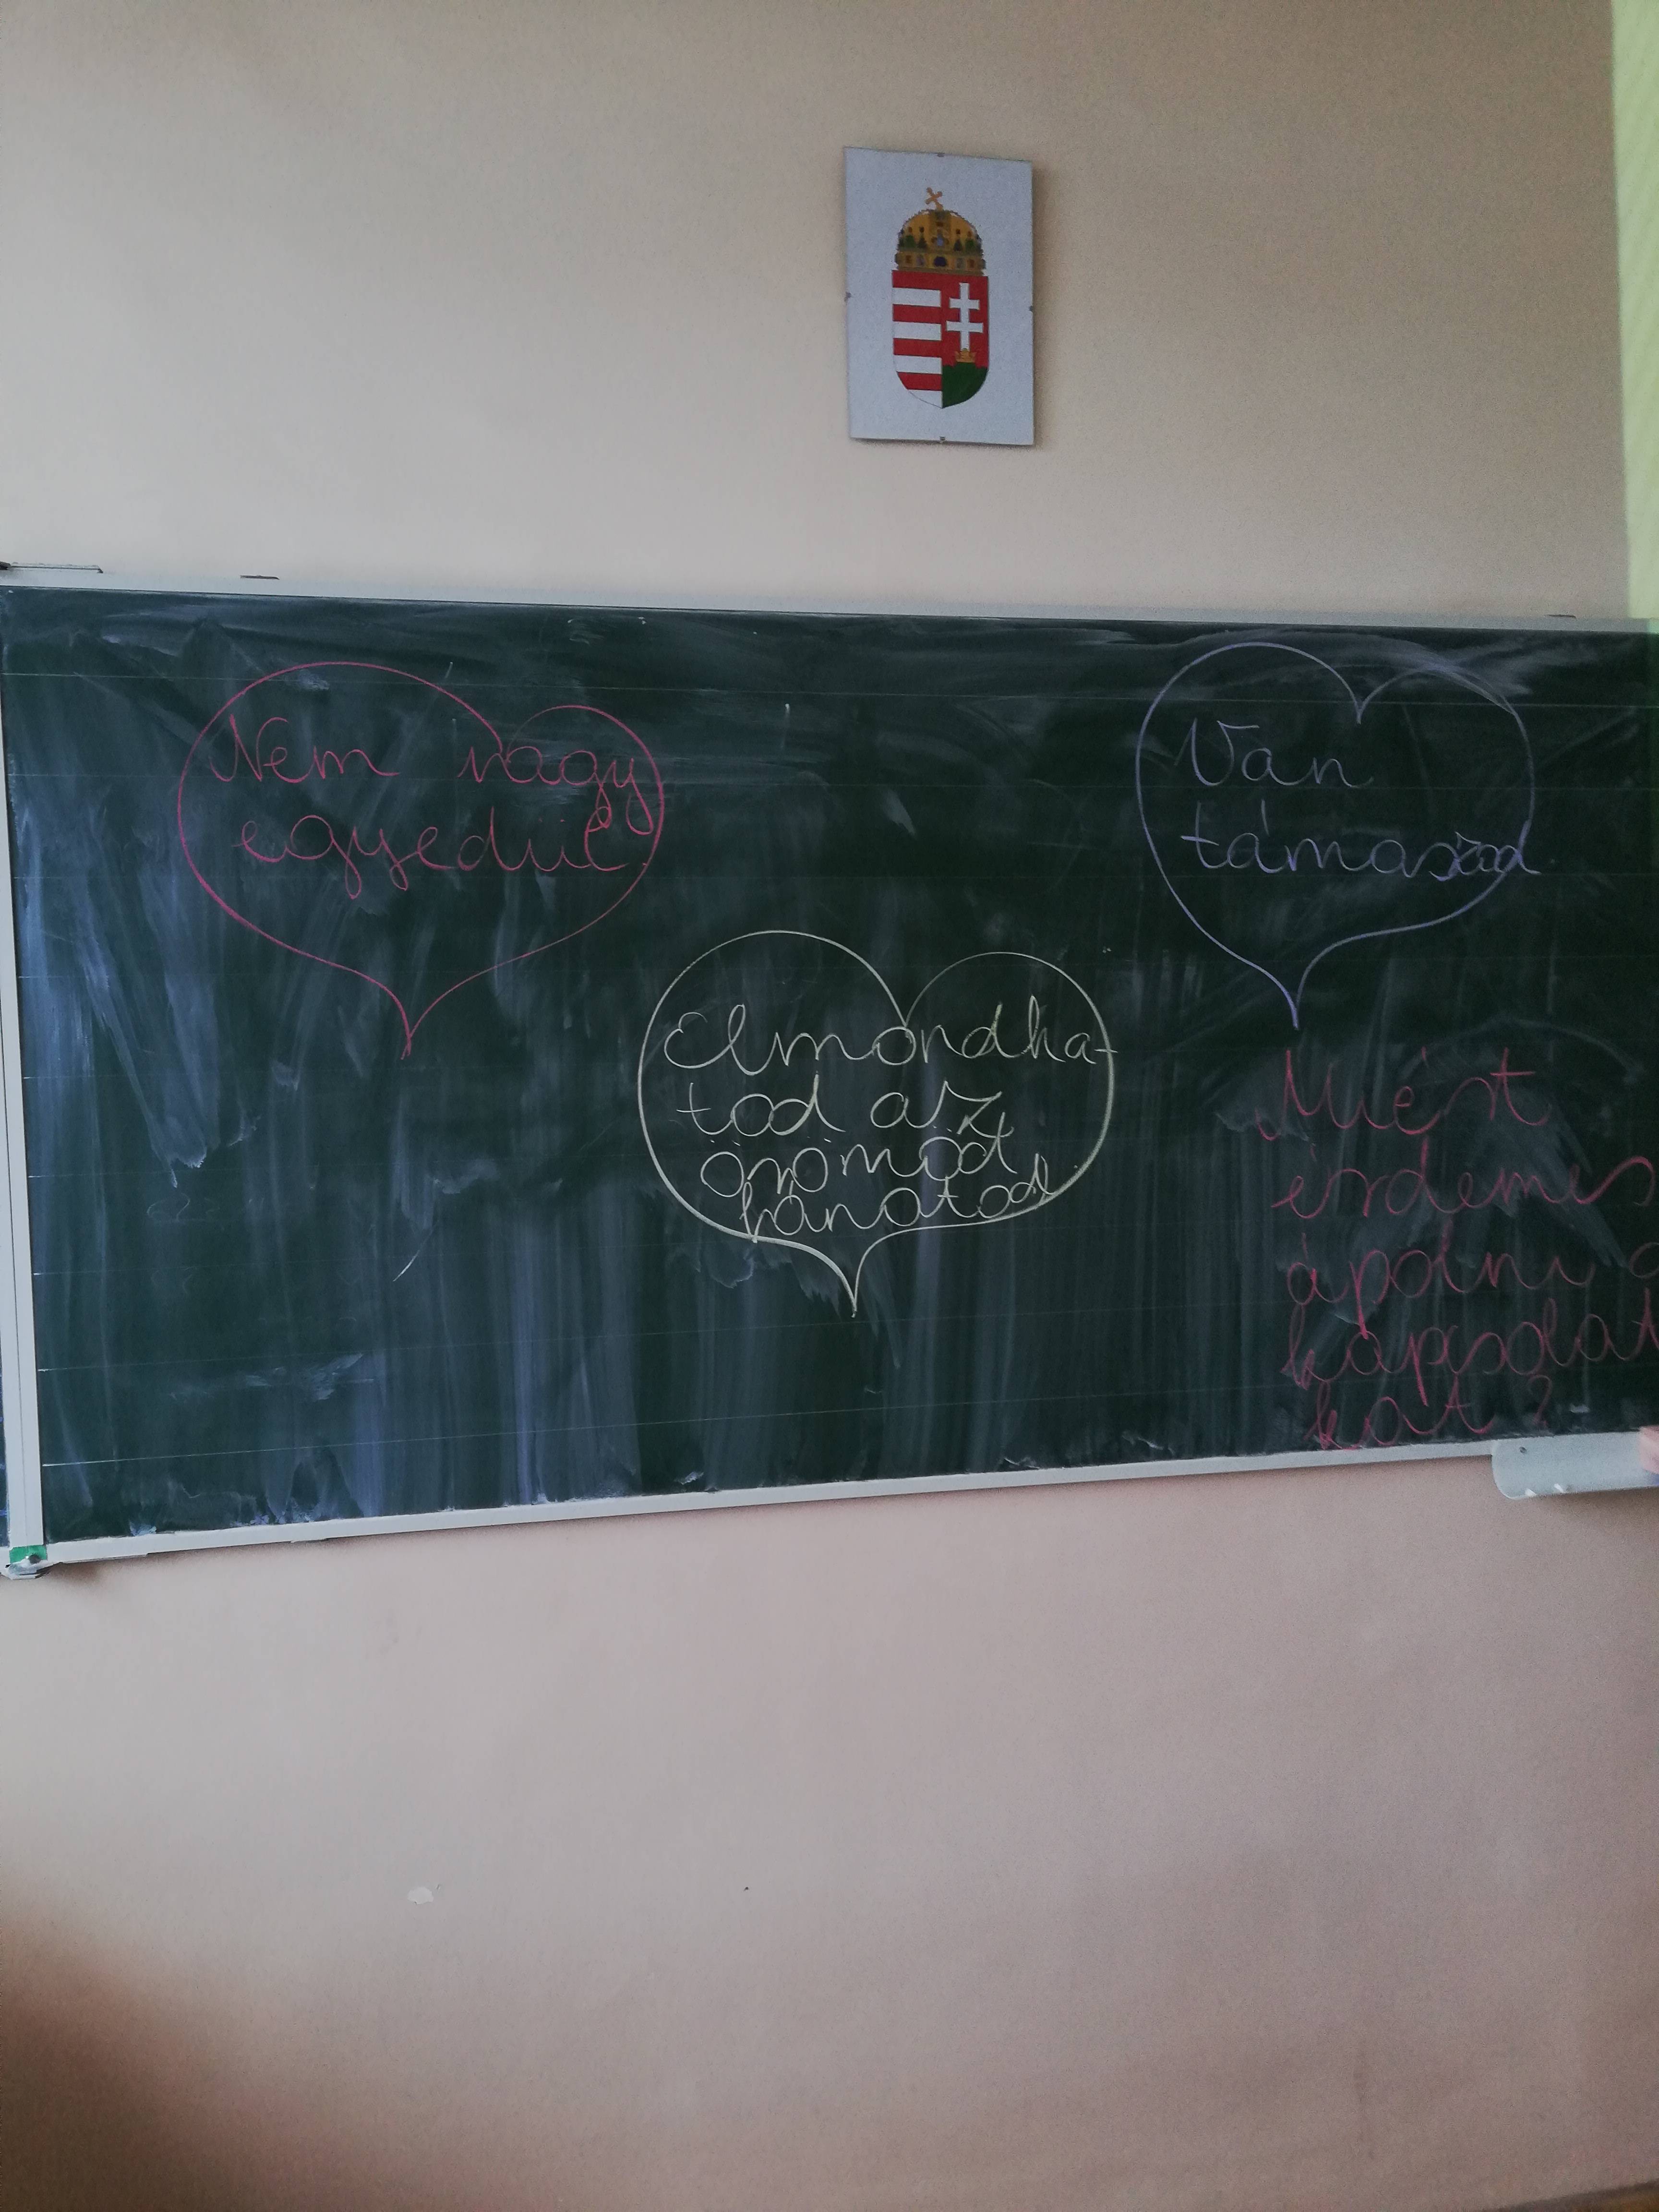 Nem vagy
egyedül.
Van
támaszod.
Elmondha-
tod az
örömöd,
bánatod.
Miért
érdemes
ápolni a
kapcsolat
kat?